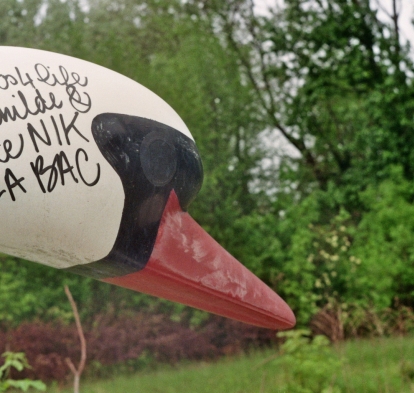 life
milde
NIK
A BAC